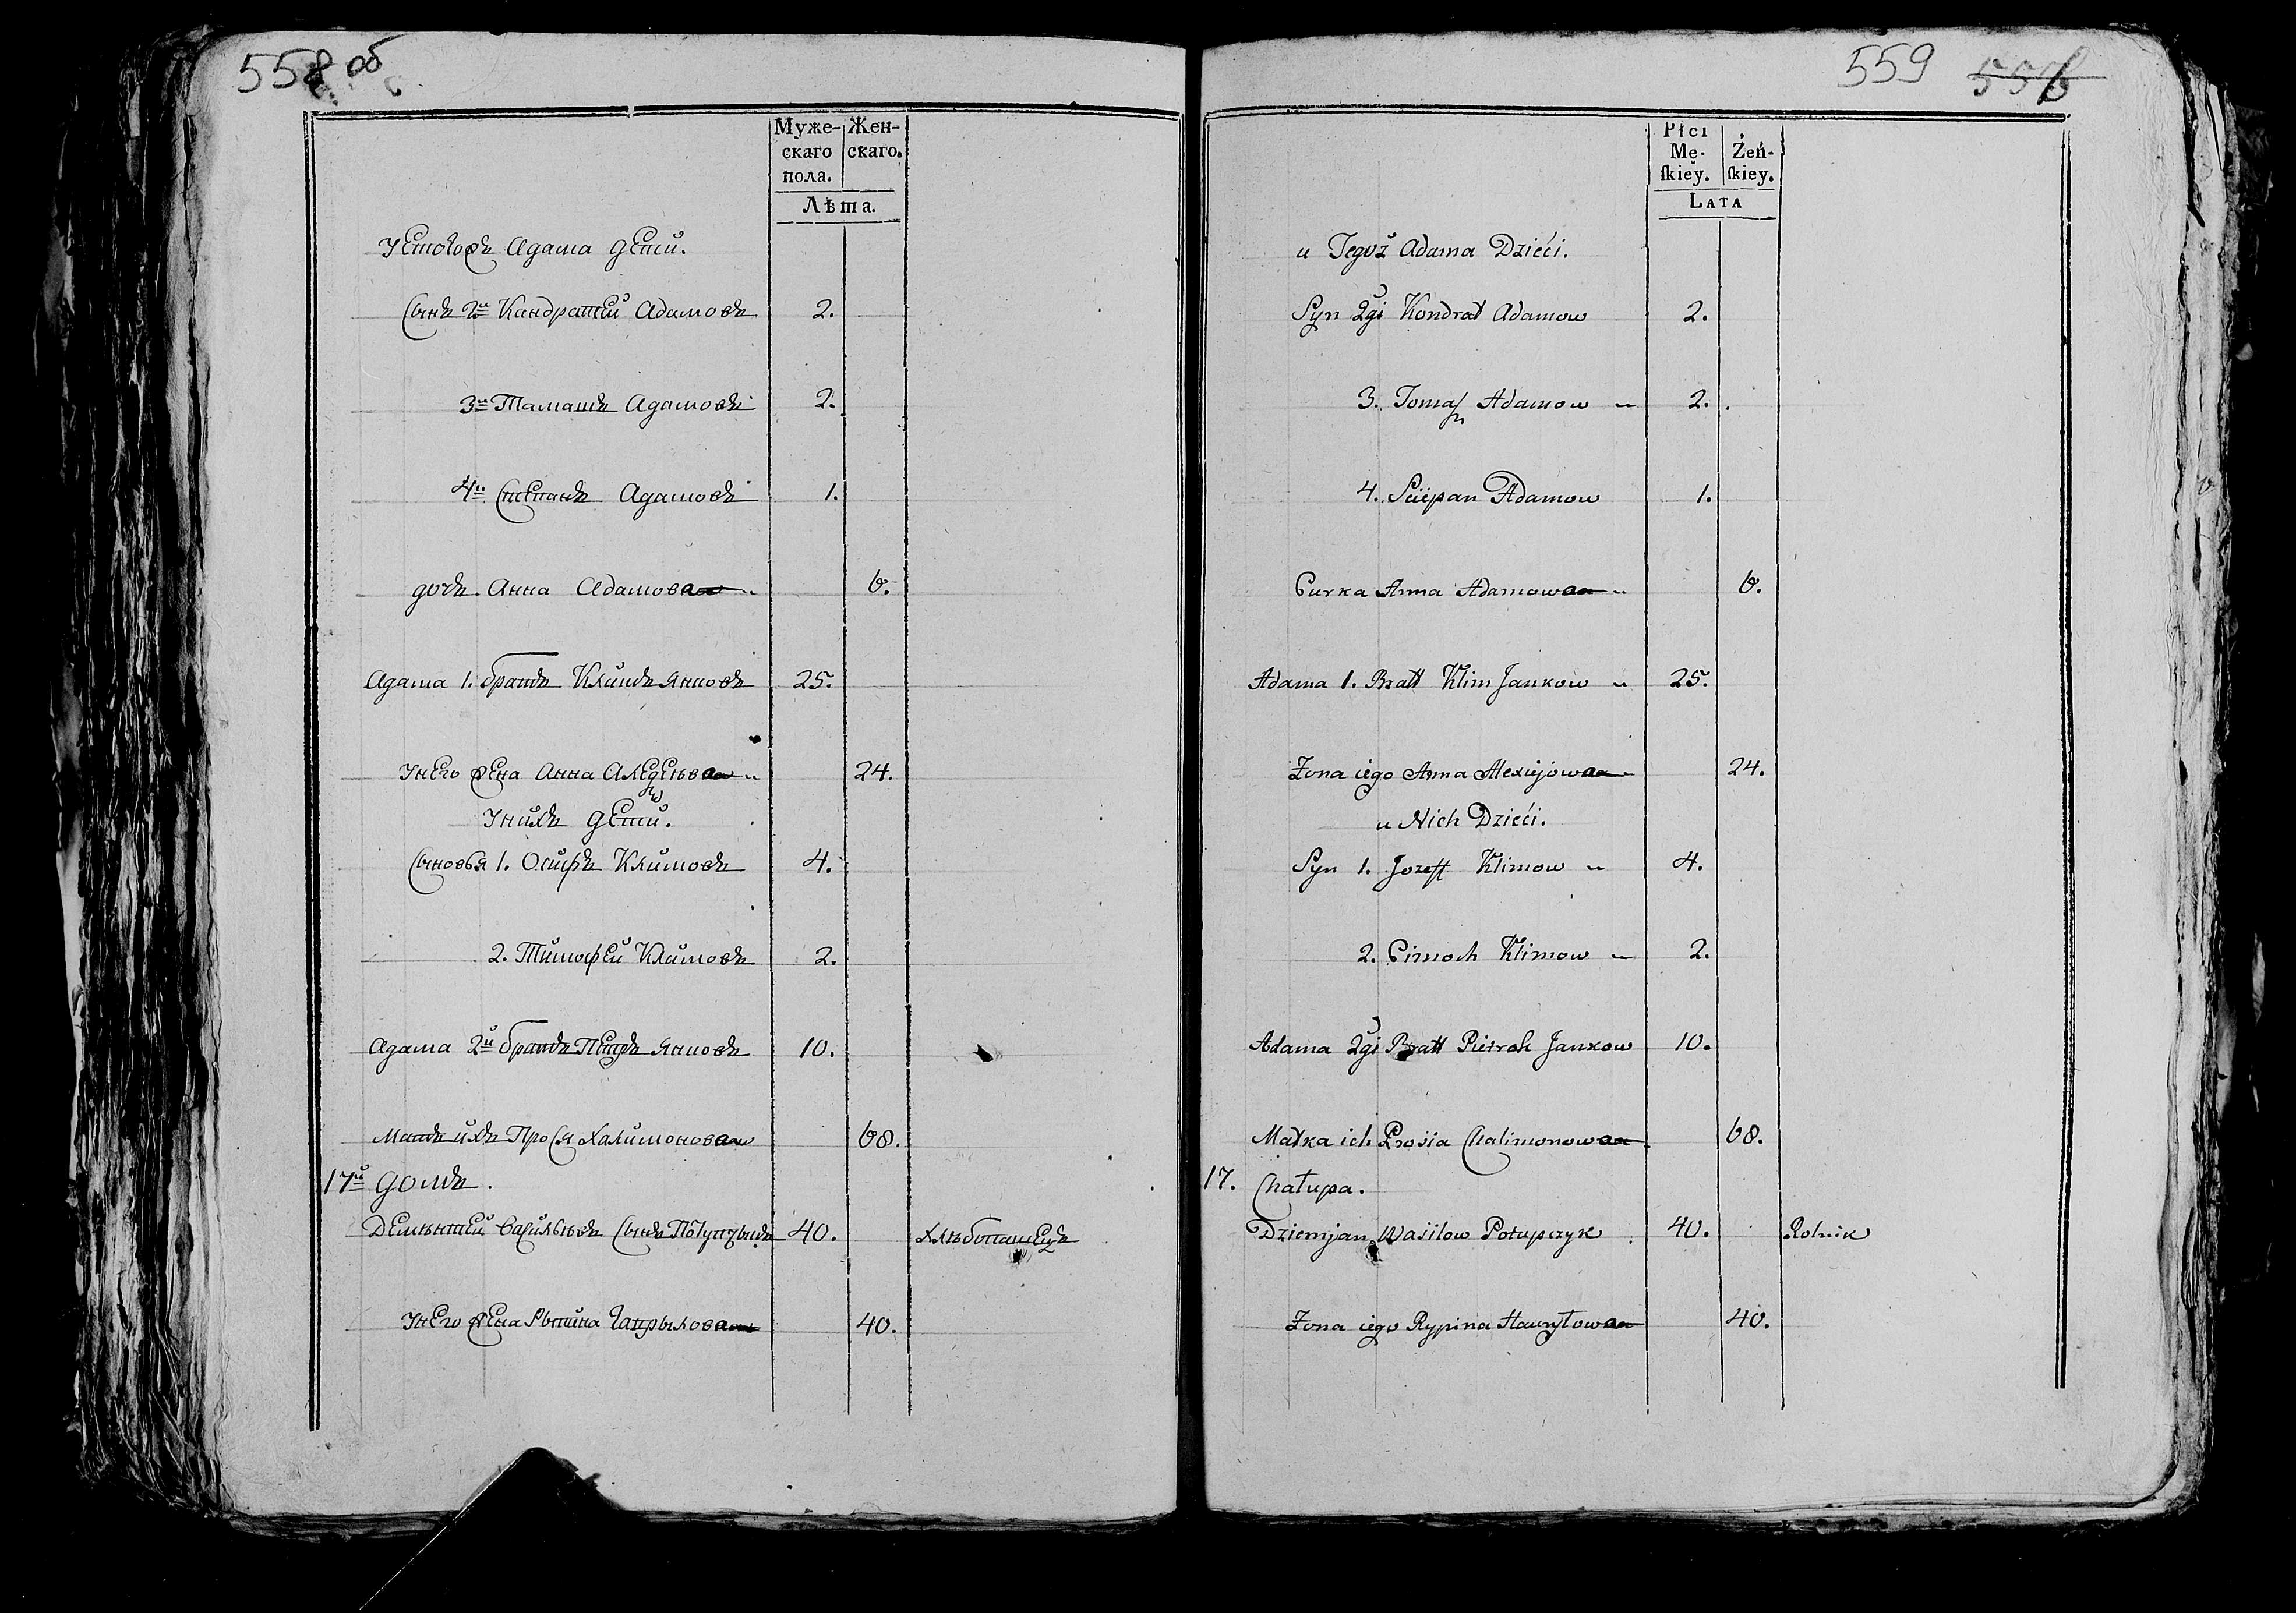 558 об
Муже-
скаго
пола.
Жен-
скаго.
Лѣта.
У Тогожъ Адама дети.
Сынъ 2й Кандратей Адамовъ 2.
3й Тамашъ Адамовъ 2.
4й Степанъ Адамовъ 1.
дочь Анна Адамова 6.
Адама 1. братъ Климъ Янковъ 25.
У него жена Анна 24.
У нихъ дети.
Сыновья 1. Осифъ Климовъ 4.
2. Тимофей Климовъ 2.
Адама 2й братъ Петръ Янковъ 10.
Мать ихъ Прося Халимонова 68.
17й домъ.
Демьянтей Васильевъ Сынъ 40. Хлѣбопашецъ
У него жена Рыпина Гапрылова 40.
559 556
Płci
Mę-
skiey.
Żeń-
skiey.
Lata
u Tegoż Adama Dzieći.
Syn 2gi Kondrat Adamow 2.
3. Tomasz Adamow 2.
4. Sciepan Adamow 1.
Curka Anna Adamowa 6.
Adama 1. Bratt Klim Jankow 25.
Zona iego Anna Alexiejowa 24.
u Nich Dzieći.
Syn 1. Jozeff Klimow 4.
2. Cimoch Klimow 2.
Adama 2gi Bratt Pietrok Jankow 10.
Matka ich Prosia Chalimonowa 68.
17. Chałupa.
Dziemjan Wasilow Połupczyk 40. Rolnik
Zona iego Rypina Hawryłowa 40.